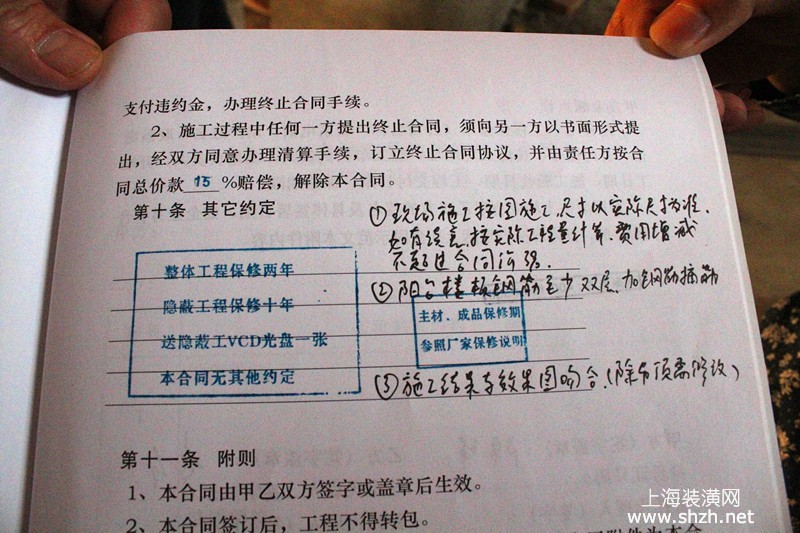 支付违约金，办理终止合同手续。
2、施工过程中任何一方提出终止合同，须向另一方以书面形式提
出，经双方同意办理清算手续，订立终止合同协议，并由责任方按合
同总价款 15 %赔偿，解除本合同。
第十条 其它约定
①现场施工按图施工，尺寸以实际尺寸为准．
如有 按实际工程量计算．费用增减
不 过合同
②阳台楼板钢筋至少双层．加钢筋 筋
整体工程保修两年
隐蔽工程保修十年
送隐蔽工VCD光盘一张
本合同无其他约定
主材、成品保修期
参照厂家保修说明
③施工结果与效果图吻合．(除 顶 修改)
第十一条 附则
1、本合同由甲乙双方签字或盖章后生效。
2、本合同签订后，工程不得转包。
上海装潢网
www.shzh.net